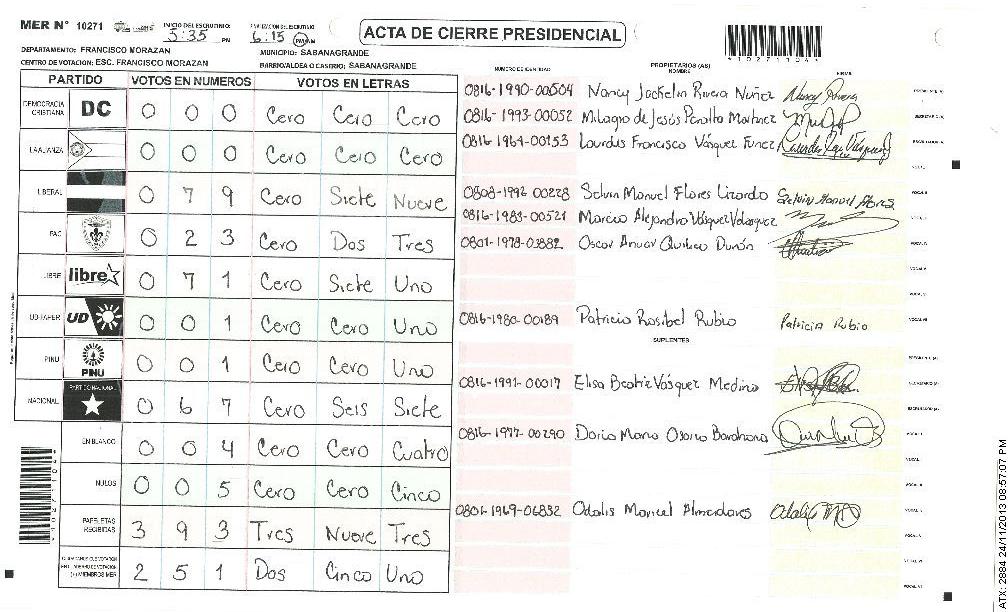 MER N° 10271 INICIO DEL ESCRUTINIO: 5:35 PM FINALIZACION DEL ESCRUTINIO 6:15 PM
ACTA DE CIERRE PRESIDENCIAL
*102711041*
DEPARTAMENTO: FRANCISCO MORAZAN MUNICIPIO: SABANAGRANDE
CENTRO DE VOTACION: ESC. FRANCISCO MORAZAN BARRIO/ALDEA O CASERIO: SABANAGRANDE
PARTIDO VOTOS EN NUMEROS VOTOS EN LETRAS
DEMOCRACIA CRISTIANA DC 0 0 0 Cero Cero Cero
LA ALIANZA 0 0 0 Cero Cero Cero
LIBERAL 0 7 9 Cero Siete Nueve
PAC 0 2 3 Cero Dos Tres
LIBRE libre 0 7 1 Cero Siete Uno
UD-FAPER UD 0 0 1 Cero Cero Uno
PINU PINU 0 0 1 Cero Cero Uno
NACIONAL PARTIDO NACIONAL 0 6 7 Cero Seis Siete
EN BLANCO 0 0 4 Cero Cero Cuatro
NULOS 0 0 5 Cero Cero Cinco
PAPELETAS RECIBIDAS 3 9 3 Tres Nueve Tres
(+) MIEMBROS MER 2 5 1 Dos Cinco Uno
NUMERO DE IDENTIDAD PROPIETARIOS (AS) NOMBRE FIRMA
0816-1990-00504 Nancy Jackelin Rivera Nuñez Nancy Rivera
0816-1993-00052 Milagro de Jesús Peralta Martinez
0816-1964-00153 Lourdes Francisca Vásquez Funez
0803-1992 00228 Selvin Manuel Flores Lizardo Selvin Manuel Flores
0816-1983-00521 Marcio Alejandro Vásquez Velasquez
0801-1978-03882 Oscar Anuar
0816-1980-00189 Patricia Rosibel Rubio Patricia Rubio
SUPLENTES
0816-1991-00017 Elisa Beatriz Vásquez Medina
0816-1977-00290 Doris Maria Osorio Barahona
0801-1969-06832 Odalis Maricel Almendares
ATX: 2884 24/11/2013 08:57:07 PM